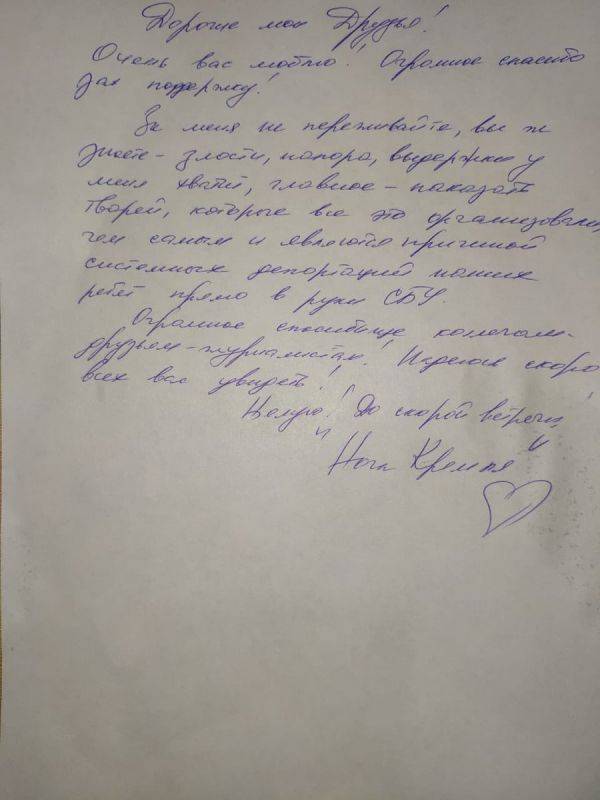 Дорогие мои Друзья!
Очень вас люблю! Огромное спасибо
за поддержку!
За меня не переживайте, вы ж
знаете - злости, напора, выдержки у
меня хватит, главное - наказать
тварей, которые все это организовали,
тем самым и являются причиной
системных депортаций наших
ребят прямо в руки СБУ.
Огромное спасибище коллегам-
друзьям - журналистам! Надеюсь скоро
всех вас увидеть!
Целую! До скорой встречи,
"Кремля"